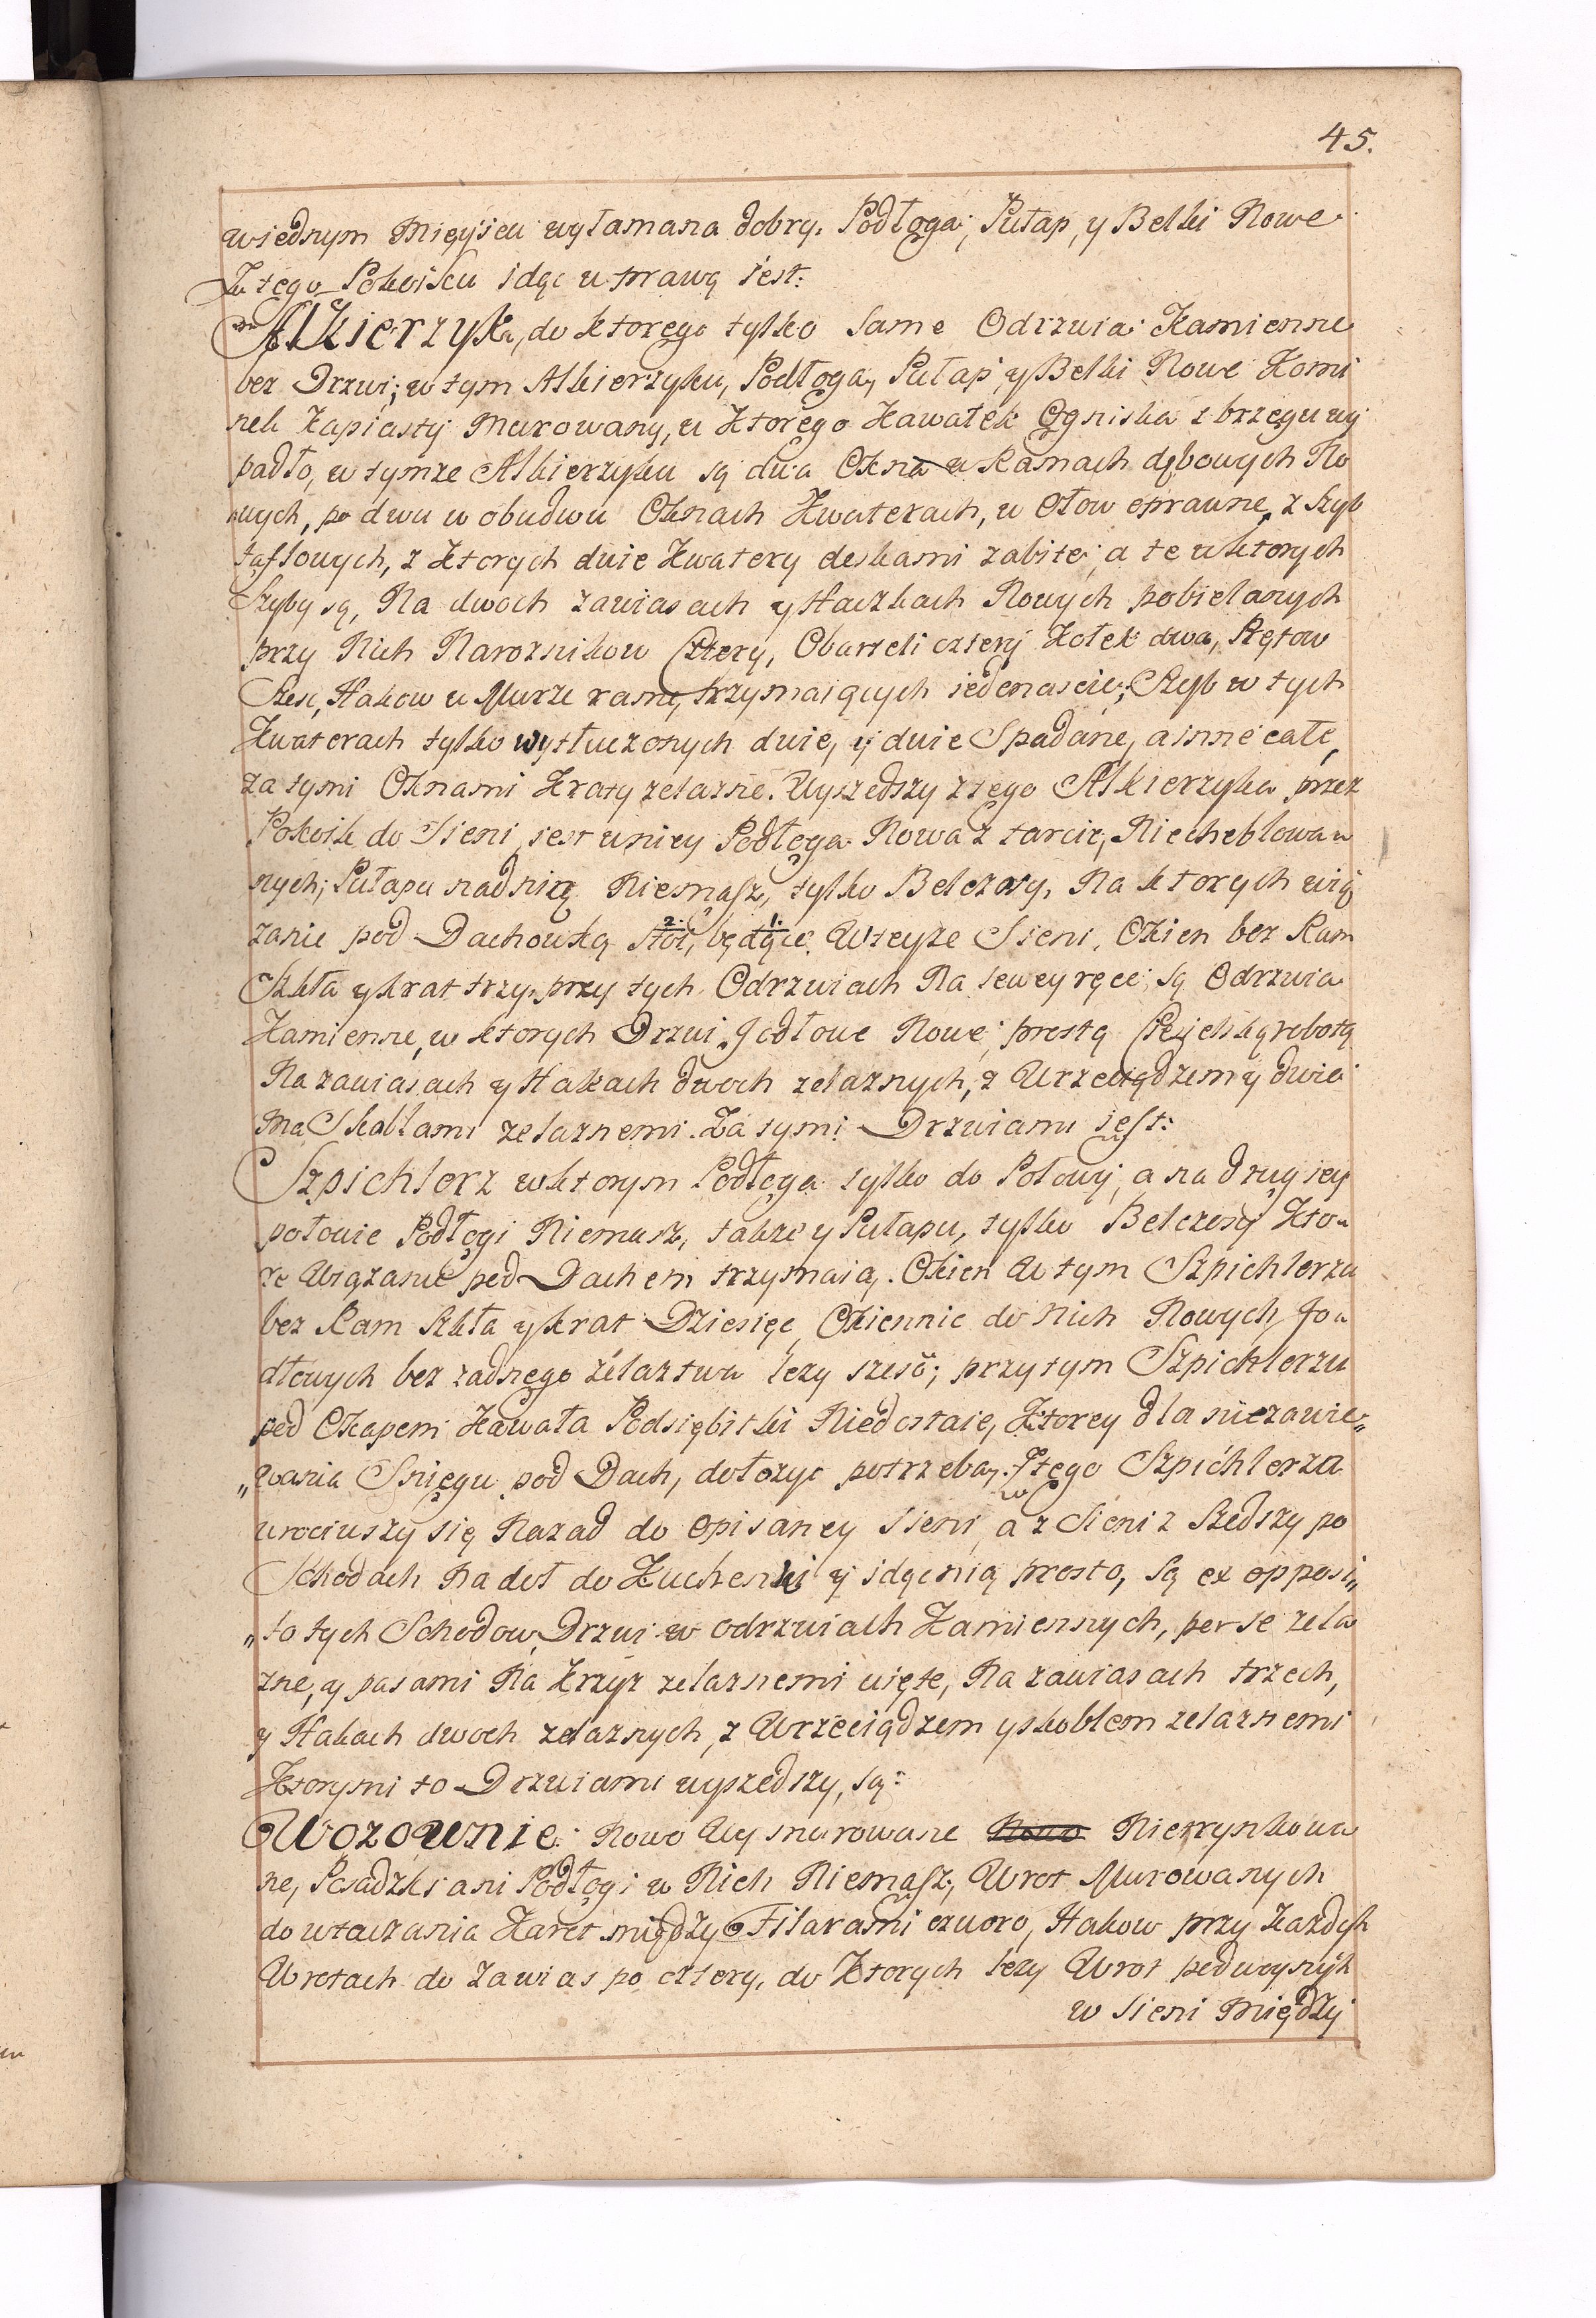 45.
wiednym Mięyscu wyłamana dobry. Podłoga, Pułap, y Belki Nowe
Z tego Pokoiku idąc w prawą iest:
Alkierzyk, do ktorego tylko same Odrzwia Kamienne
bez Drzwi; w tym Alkierzyku, Podłoga, Pułap y Belki Nowe Komi
nek Kapiasty Murowany, u Ktorego Kawałek Ogniska z brzegu wy
padło, w tymze Alkierzyku są dwa Okna w Ramach dębowych No
wych, po dwu w obudwu Oknach Kwaterach, w Ołow oprawne, z Szyb
taflowych, z Ktorych dwie Kwatery deskami zabite; a te w ktorych
Szyby są, Na dwoch zawiasach y Haczkach Nowych pobielanych
przy Nich Naroznikow Cztery, Obarteli cztery Kołek dwa, Prętow
Szesc, Hakow w Murze ramę trzymaiących iedenascie; Szyb w tych
Kwaterach tylko wytłuczonych dwie, y dwie Spadane, a inne całe,
za tymi Oknami Kraty zelazne. Wyszedszy z tego Alkierzyka przez
Pokoik do Sieni, iest w niey Podłoga Nowa z tarcic, Niecheblowan
nych; Pułapu nad nią Niemasz, tylko Belczony, Na ktorych wią
zanie pod Dachowką 2. stoi, 1. będące. Wteyze Sieni, Okien bez Ram
Szkła y krat trzy. przy tych Odrzwiach Na lewey ręce; są Odrzwia
Kamienne, w ktorych Drzwi Jodłowe Nowe; prostą Ciesielską robotą
Na zawiasach y Hakach dwoch zelaznych, z Wrzeciądzem y dwie
ma Skoblami zelaznemi. Za tymi Drzwiami iest:
Szpichlerz w ktorym Podłoga tylko do Połowy, a na drugiey
połowie Podłogi Niemasz, takze y Pułapu, tylko Belczony Kto
re Wiązanie pod Dachem trzymaią. Okien W tym Szpichlerzu
bez Ram Szkła y krat Dziesięć, Okiennic do Nich Nowych Jo
dłowych bez zadnego zelaztwa lezy szesć; przy tym Szpichlerzu
pod Okapem Kawała Podsiębitki Niedostaie, Ktorey dla niezawie„
„wania Sniegu pod Dach, dołozyc potrzeba. Ztego Szpichlerza
wrociwszy się Nazad do opisaney sieni, a z Sieni z Szedszy po
Schodach Na doł do Kuchenki y idąc nią prosto, są ex opposi„
„to tych Schodow Drzwi w odrzwiach Kamiennych, per se zela
zne, y pasami Na Krzyz zelaznemi uięte, Na zawiasach trzech,
y Hakach dwoch zelaznych, z Wrzeciądzem y skoblem zelaznemi
Ktorymi to Drzwiami wyszedszy, są:
Wozownie. Nowo Wymurowane Nowo Nierynkowa
ne, Posadzki ani Podłogi w Nich Niemasz, Wrot Murowanych
do wtaczania Karet między Filarami czworo, Hakow przy kazdych
Wrotach do Zawias po cztery, do Ktorych lezy Wrot podwoynych
w Sieni między